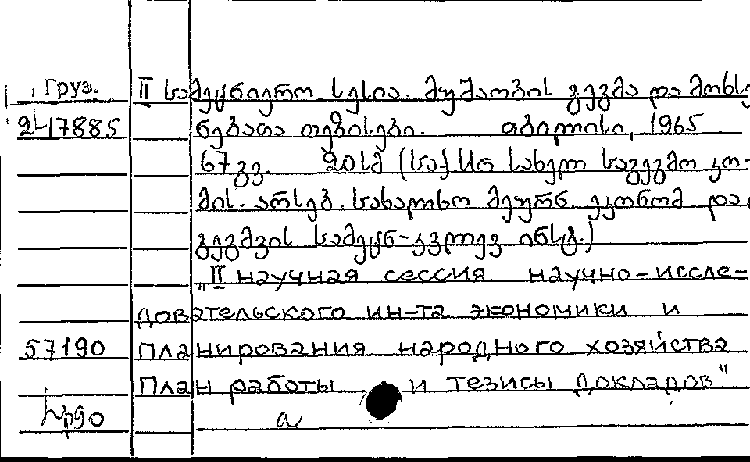 Груз. II სამეცნიერო სესია. მუშაობის გეგმა და მოხსე
2-17885 ნებათა თეზისები. თბილისი, 1965
67 გვ. 20სმ (საქ.სსრ სახელ საგეგმო კო-
მის. არსებ. სახალხო მეურნ ეკონომ და
გეგმვის სამეცნ-კვლევ ინსტ.)
„II научная сессия научно-иссле-
довательского ин-та экономики и
57190 планирования народного хозяйства
План работы и тезисы докладов"